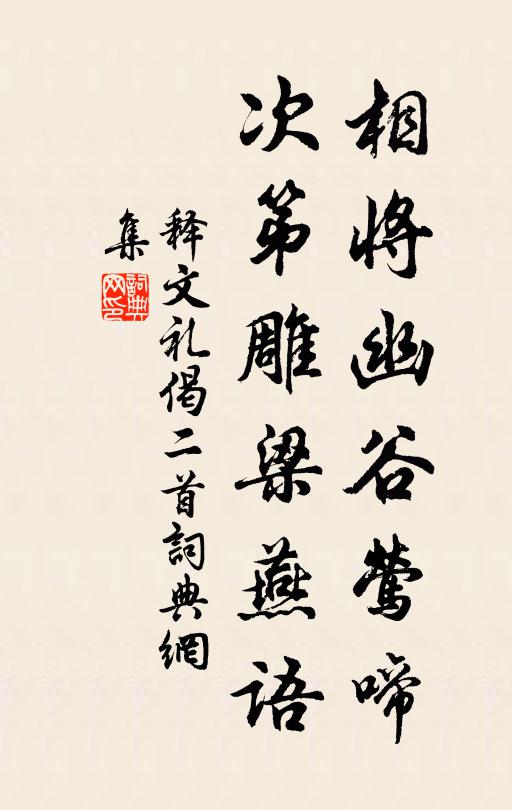 相将幽谷莺啼
次第雕梁燕语
释文礼偈二首詞典網
集
詞典
网印